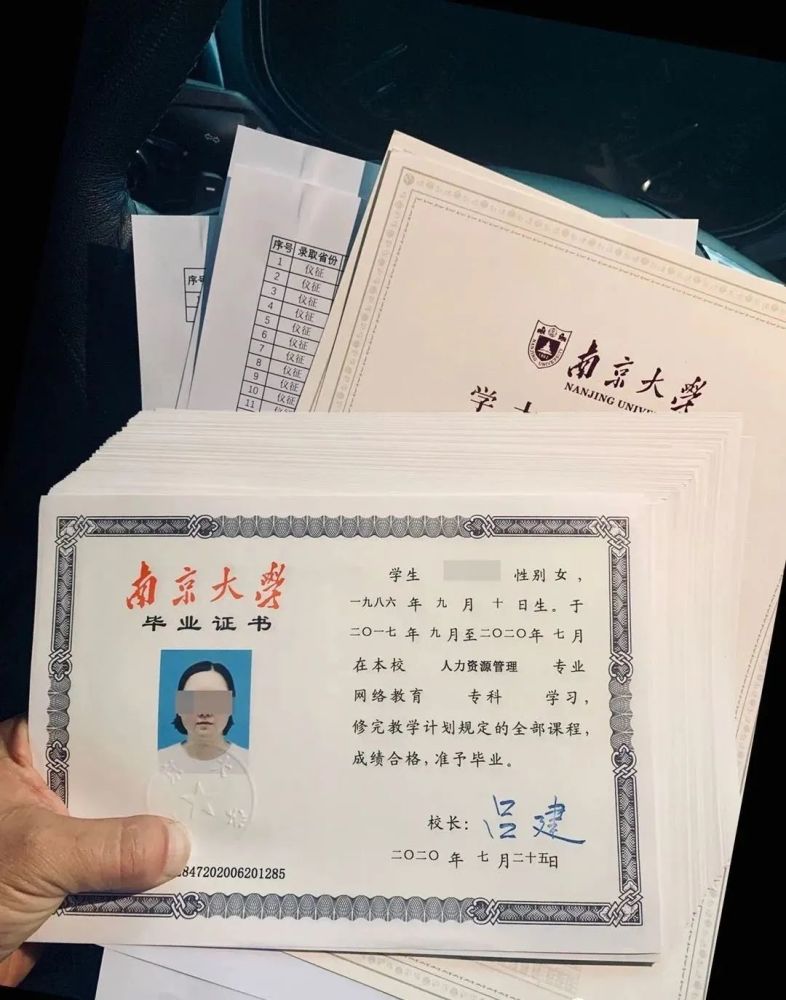 序号
序号 录取省份
1 仪征
2 仪征
3 仪征
4 仪征
5 仪征
6 仪征
7 仪征
8 仪征
9 仪征
10 仪征
11 仪征
南京大学
NANJING UNIVE
学士
南京大学
毕业证书
学生 性别 女，
一九八六 年 九 月 十 日生。于
二〇一七 年 九 月至二〇二〇年 七 月
在本校 人力资源管理 专业
网络教育 专科 学习，
修完教学计划规定的全部课程，
成绩合格，准予毕业。
校长：吕建
二〇二〇 年 七 月二十五日
847202006201285